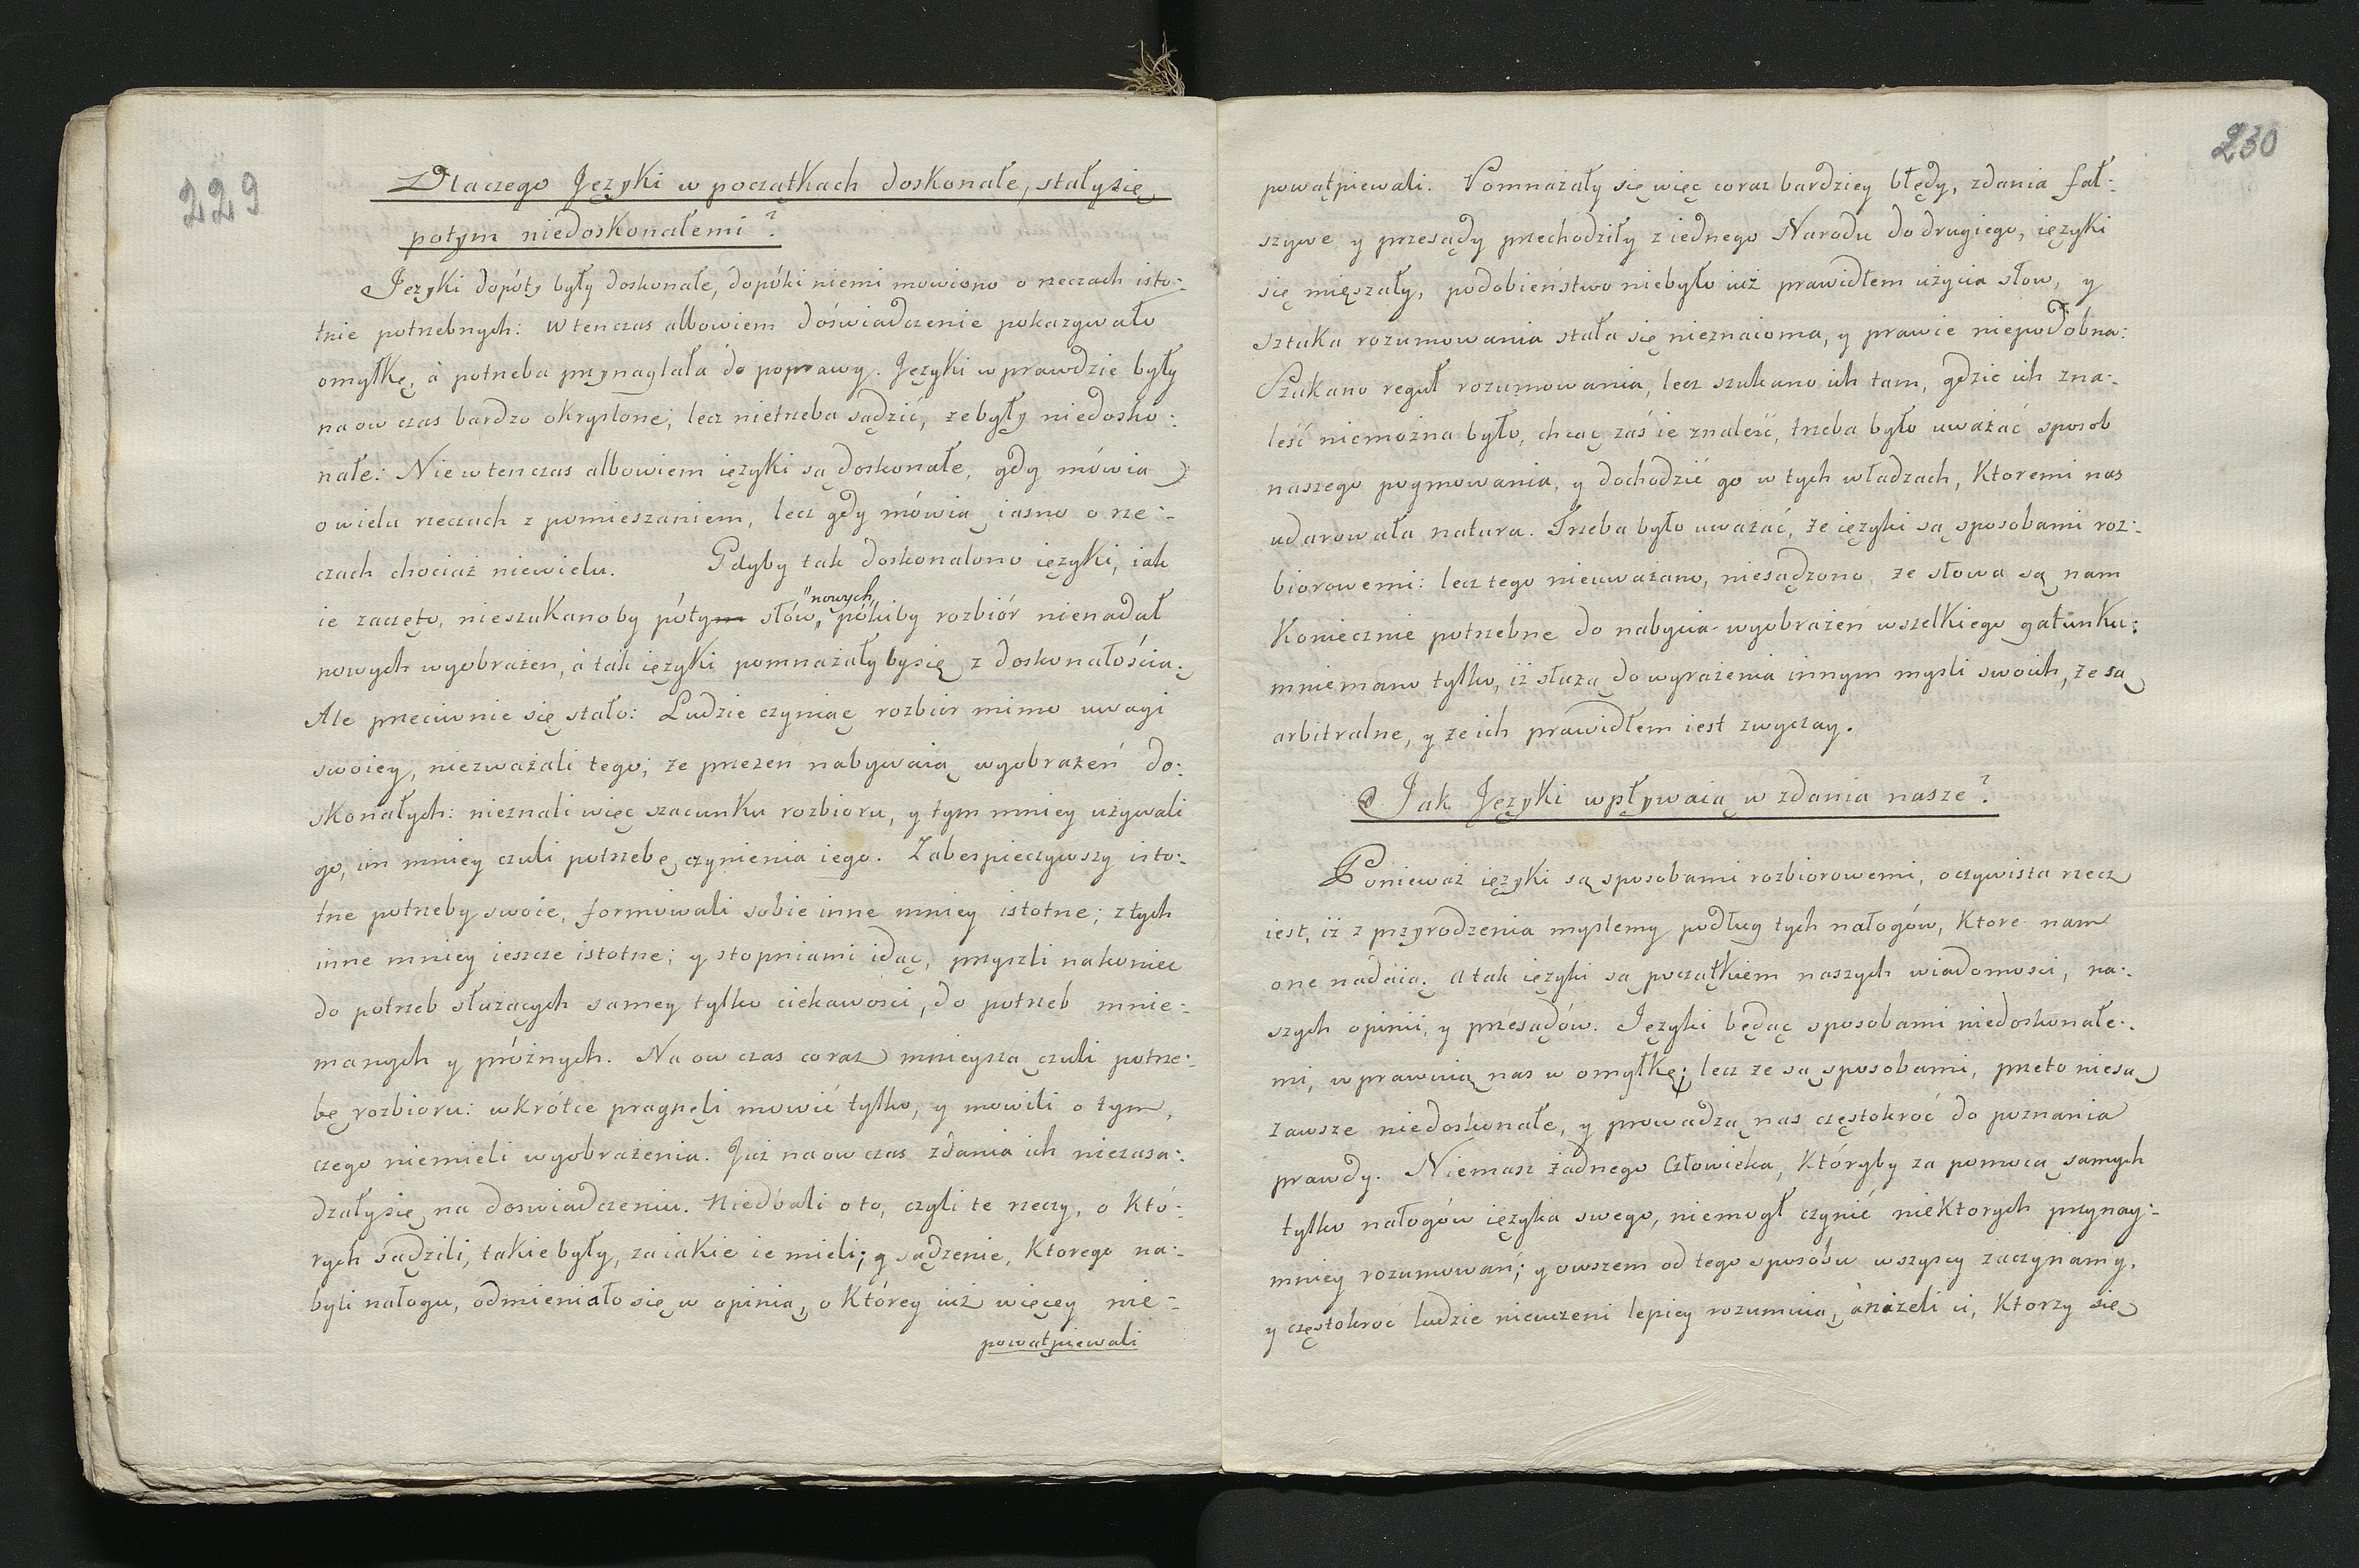 229
Dlaczego Języki w początkach doskonałe, stały się
potym niedoskonałemi?
Języki dopóty były doskonałe, dopóki niemi mowiono o rzeczach isto:
tnie potrzebnych: W tenczas albowiem doświadczenie pokazywało
omyłkę, à potrzeba przynaglała do poprawy. Języki w prawdzie były
na ow czas bardzo okryslone; lecz nietrzeba sądzić, że były niedosko:
nałe: Nie w tenczas albowiem ięzyki są doskonałe, gdy mówią
o wielu rzeczach z pomieszaniem, lecz gdy mówią iasno o rze:
czach chociaż niewielu. Gdyby tak doskonalono ięzyki, iak
ie zaczęto, nieszukanoby póty słów "nowych, pókiby rozbiór nienadał
nowych wyobrażen, à tak ięzyki pomnażały by się z doskonałością.
Ale przeciwnie się stało: Ludzie czyniąc rozbiór mimo uwagi
swoiey, niezważali tego; że przezeń nabywaią wyobrażeń do:
skonałych: nieznali więc szacunku rozbioru, y tym mniey używali
go, im mniey czuli potrzebę czynienia iego. Zabespieczywszy isto:
tne potrzeby swoie, formowali sobie inne mniey istotne; z tych
inne mniey ieszcze istotne; y stopniami idąc, przyszli nakoniec
do potrzeb służących samey tylko ciekawosci, do potrzeb mnie:
manych y próżnych. Na ow czas coraz mnieyszą czuli potrze:
bę rozbioru: wkrótce pragnęli mowić tylko, y mowili o tym,
czego niemieli wyobrażenia. Już na ow czas zdania ich niezasa:
dzały się na doswiadczeniu. Niedbali o to, czyli te rzeczy, o któ:
rych sądzili, takie były, za iakie ie mieli; y sądzenie, Ktorego na:
byli nałogu, odmieniało się w opinią, o Którey iuż więcey nie:
powątpiewali
230
powątpiewali. Pomnażały się więc coraz bardziey błędy, zdania fał:
szywe y przesądy przechodziły z iednego Narodu do drugiego, ięzyki
się mięszały, podobieństwo niebyło iuż prawidłem użycia słow, y
sztuka rozumowania stała się nieznaioma, y prawie niepodobna:
Szukano reguł rozumowania, lecz szukano ich tam, gdzie ich zna:
leść niemożna było, chcąc zaś ie znaleść, trzeba było uważać sposob
naszego poymowania, y dochodzić go w tych władzach, Ktoremi nas
udarowała natura. Trzeba było uważać, że ięzyki są sposobami roz:
biorowemi: lecz tego nieuważano, niesądzono że słowa są nam
Koniecznie potrzebne do nabycia wyobrażeń wszelkiego gatunku:
mniemano tylko, iż służą do wyrażenia innym mysli swoich, że są
arbitralne, y że ich prawidłem iest zwyczay.
Jak Języki wpływaią w zdania nasze?
Ponieważ ięzyki są sposobami rozbiorowemi, oczywista rzecz
iest, iż z przyrodzenia myslemy podług tych nałogów, Ktore nam
one nadaią. A tak ięzyki są początkiem naszych wiadomosci, na:
szych opinii, y przesądów. Języki będąc sposobami niedoskonałe:
mi, wprawuią nas w omyłkę; lecz że są sposobami, przeto niesą
zawsze niedoskonałe, y prowadzą nas częstokroć do poznania
prawdy. Niemasz żadnego Człowieka, Któryby za pomocą samych
tylko nałogów ięzyka swego, niemogł czynić nieKtorych przynay:
mniey rozumowań; y owszem od tego sposobu wszyscy zaczynamy.
y częstokroć ludzie nieuczeni lepiey rozumuią, ànażeli ci, Ktorzy się